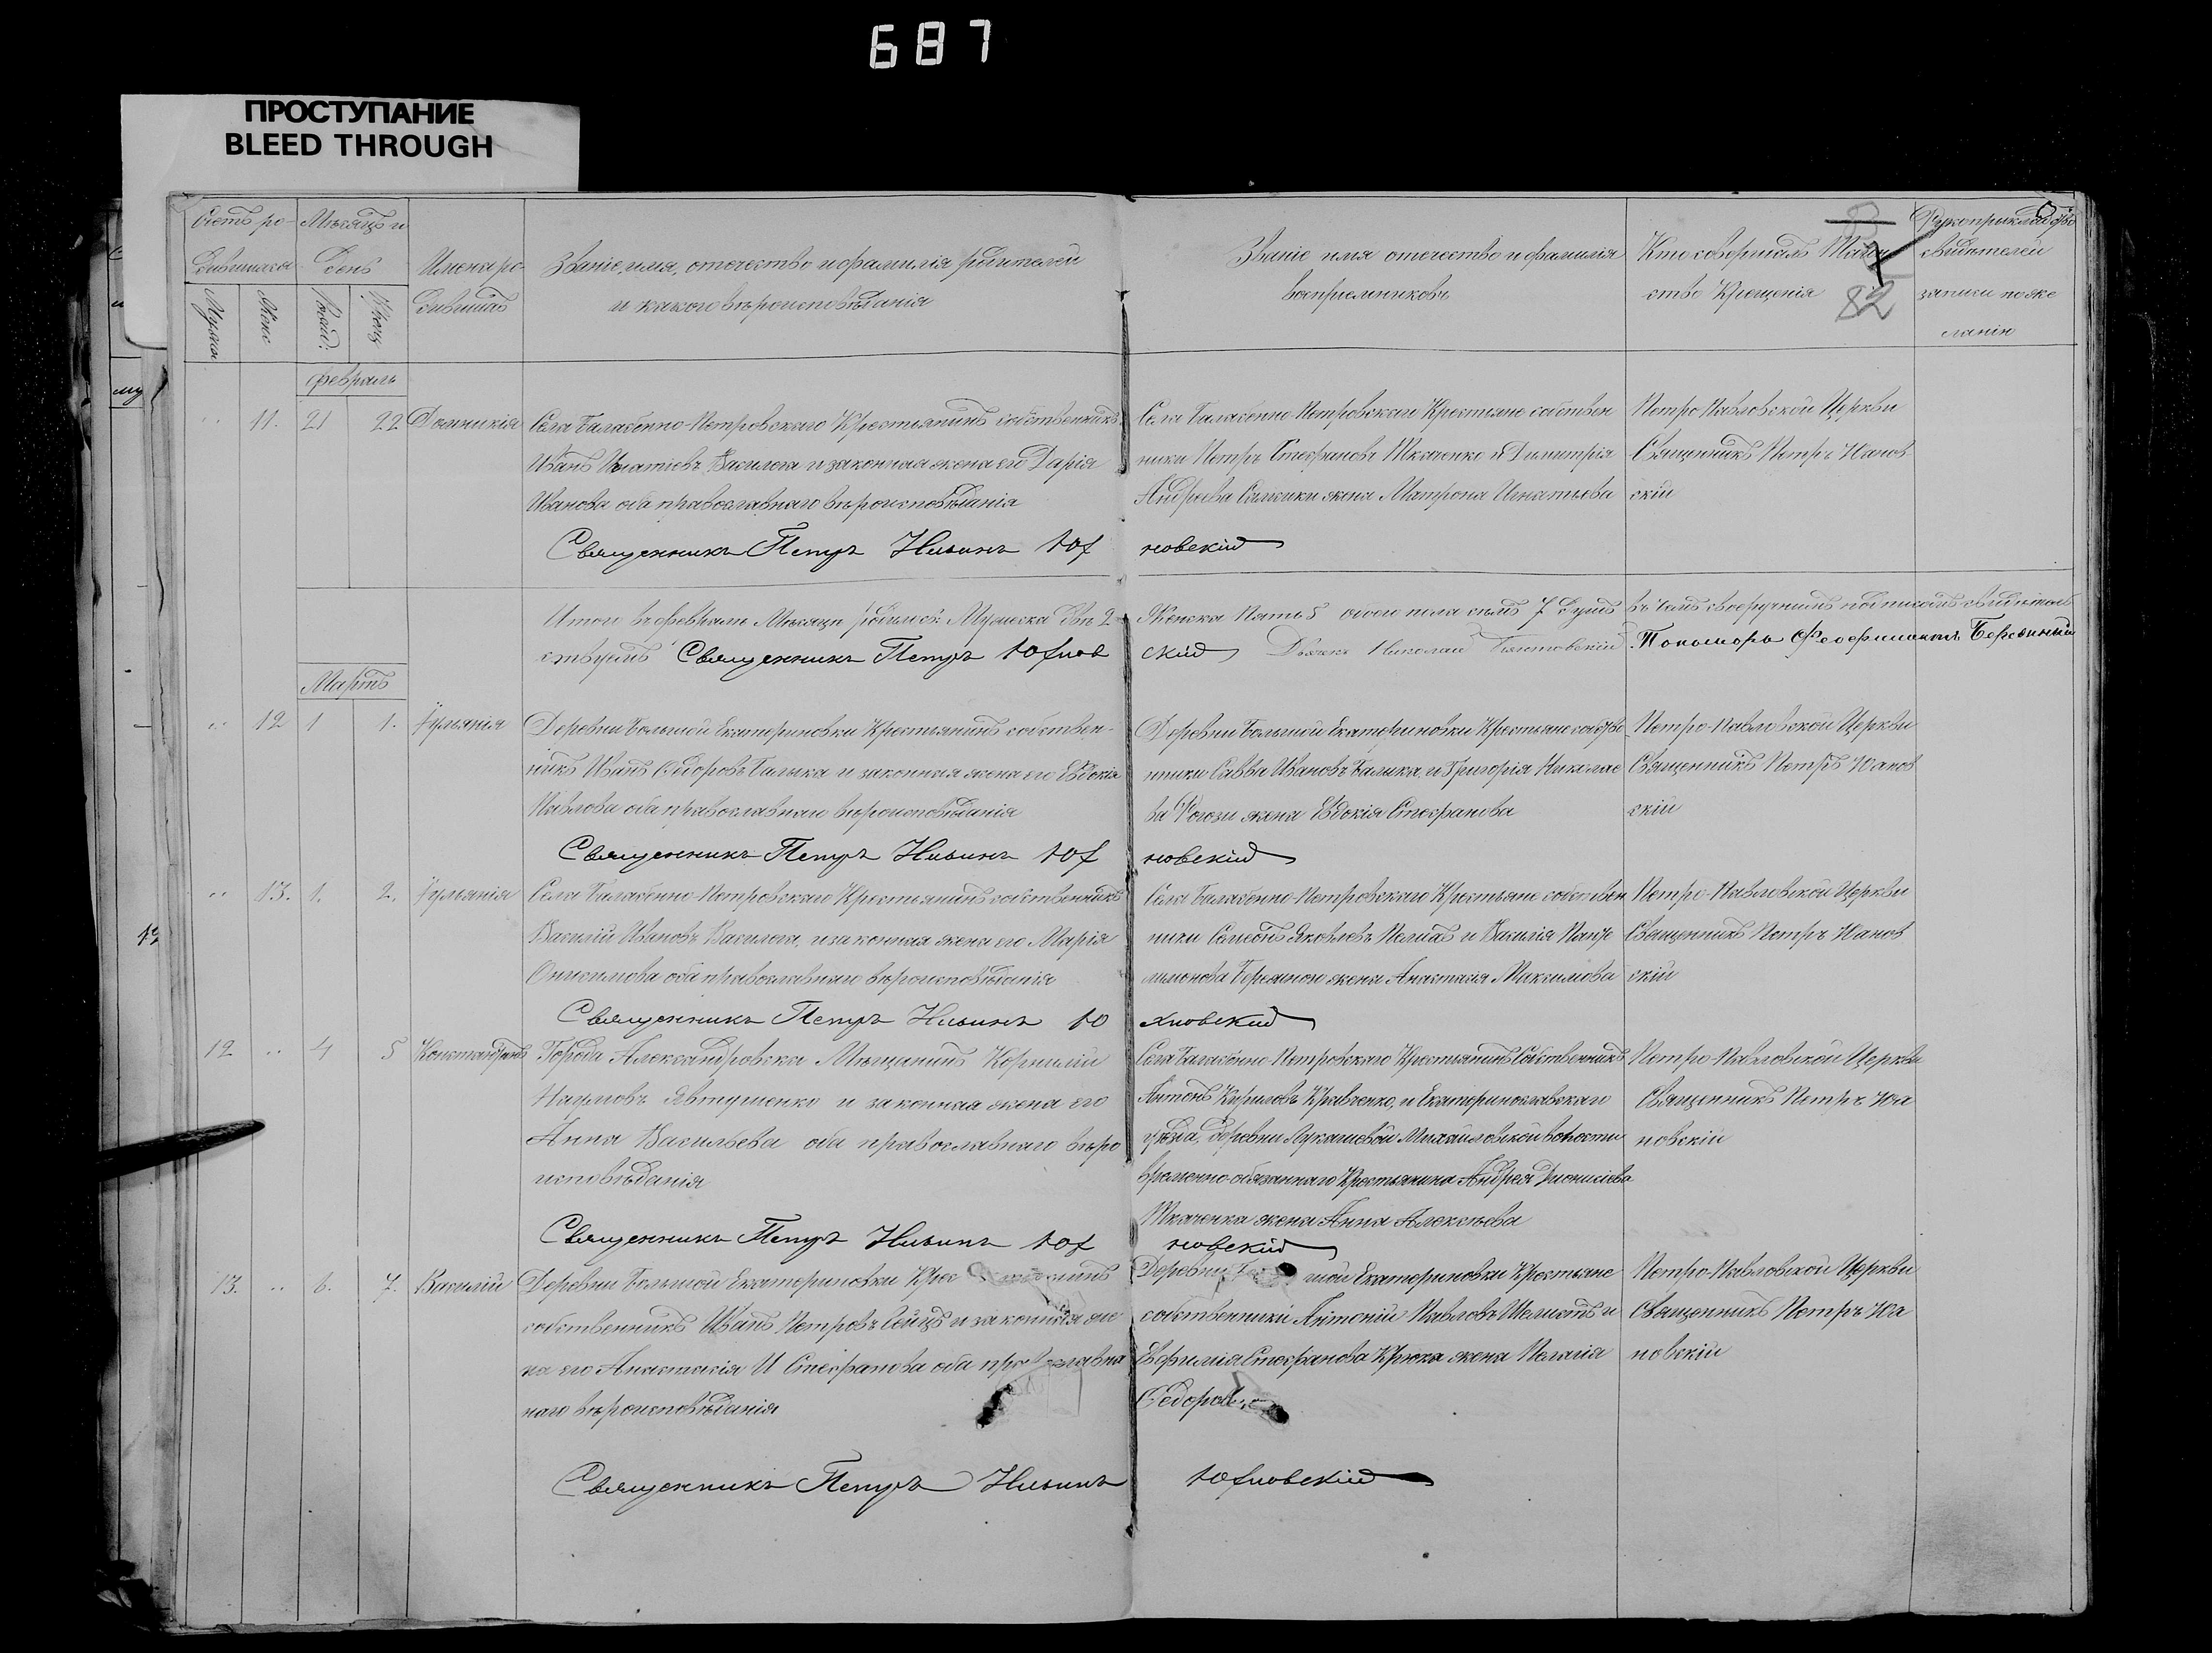 687
ПРОСТУПАНИЕ
BLEED THROUGH
Счетъ ро-
дившихся
Мужеска
Женс
Мѣсяцъ и
день
Рожд:
Крещ
Имена ро-
дившихъ
Званіе, имя, отечество и фамилія родителей
и какого вѣроисповѣданія
Званіе имя отечество и фамилія
воспріемниковъ
Кто совершалъ Таин
ство Крещенія
82
Рукоприкладство
свидѣтелей
записи по же
ланію
Февраль
11. 21 22 Домникія
Села Балабенно-Петровскаго Крестьянинъ собственникъ
Иванъ Игнатіевъ Василега и законная жена его Дарія
Иванова оба православнаго вѣроисповѣданія
Священникъ Петръ Ильинъ Юх
Села Балабенно Петровскаго Крестьяне собствен
ники Петръ Стефановъ Ткаченко и Димитрія
Андреева жена Матрона Игнатьева
новскій
Петро Павловской Церкви
Священникъ Петръ Юханов
скій
Итого въ февралѣ Мѣсяцѣ родилось: Мужеска два 2
Женска Пять 5 обоего пола семь 7 душъ
въ чемъ своеручнымъ подписомъ свидѣтель
ствуемъ Священникъ Петръ Юхнов
скій Дьячекъ Николай
Пономарь
Мартъ
12 1 1. Іуліанія
Деревни Большой Екатериновки Крестьянинъ собствен-
никъ Иванъ Ѳедоровъ Балыка и законная жена его Евдокія
Павлова оба православнаго вѣроисповѣданія
Священникъ Петръ Ильинъ Юх
Деревни Большой Екатериновки Крестьяне собстве
нники Савва Ивановъ Балыка, и Григорія Николае
ва Рогози жена Евдокія Стефанова
новскій
Петро-Павловской Церкви
Священникъ Петръ Юханов
скій
13. 1. 2. Іуліанія
Села Балабенно-Петровскаго Крестьянинъ собственникъ
Василій Ивановъ Василега, и законная жена его Марія
Онисимова оба православнаго вѣроисповѣданія
Священникъ Петръ Ильинъ Ю
Села Балабенно-Петровскаго Крестьяне собствен
ники Семеонъ Яковлевъ и Василія Панте
лимонова жена Анастасія Максимова
хновскій
Петро-Павловской Церкви
Священникъ Петръ Юханов
скій
12 4 5 Константинъ
Города Александровска Мѣщанинъ Корнилій
Наумовъ Явтушенко и законная жена его
Анна Васильева оба православнаго вѣро
исповѣданія
Священникъ Петръ Ильинъ Юх
Села Балабенно-Петровскаго Крестьянинъ Собственникъ
Антонъ Кириловъ Кравченко, и Екатеринославскаго
уѣзда, деревни Лукашевой Михайловской волости
временно-обязаннаго Крестьянина Андрея Дионисіева
Ткаченка жена Анна Алексѣева
новскій
Петро-Павловской Церкви
Священникъ Петръ Юха
новскій
13. 6. 7. Василій
Деревни Большой Екатериновки
собственникъ Иванъ Петровъ и законная же
на его Анастасія И Стефанова оба православна
наго вѣроисповѣданія
Священникъ Петръ Ильинъ
Деревни Екатериновки Крестьяне
собственники Антоній Павловъ и
Евфимія Стефанова Крюка жена Пелагія
Ѳедорова
Юхновскій
Петро-Павловской Церкви
Священникъ Петръ Юха
новскій